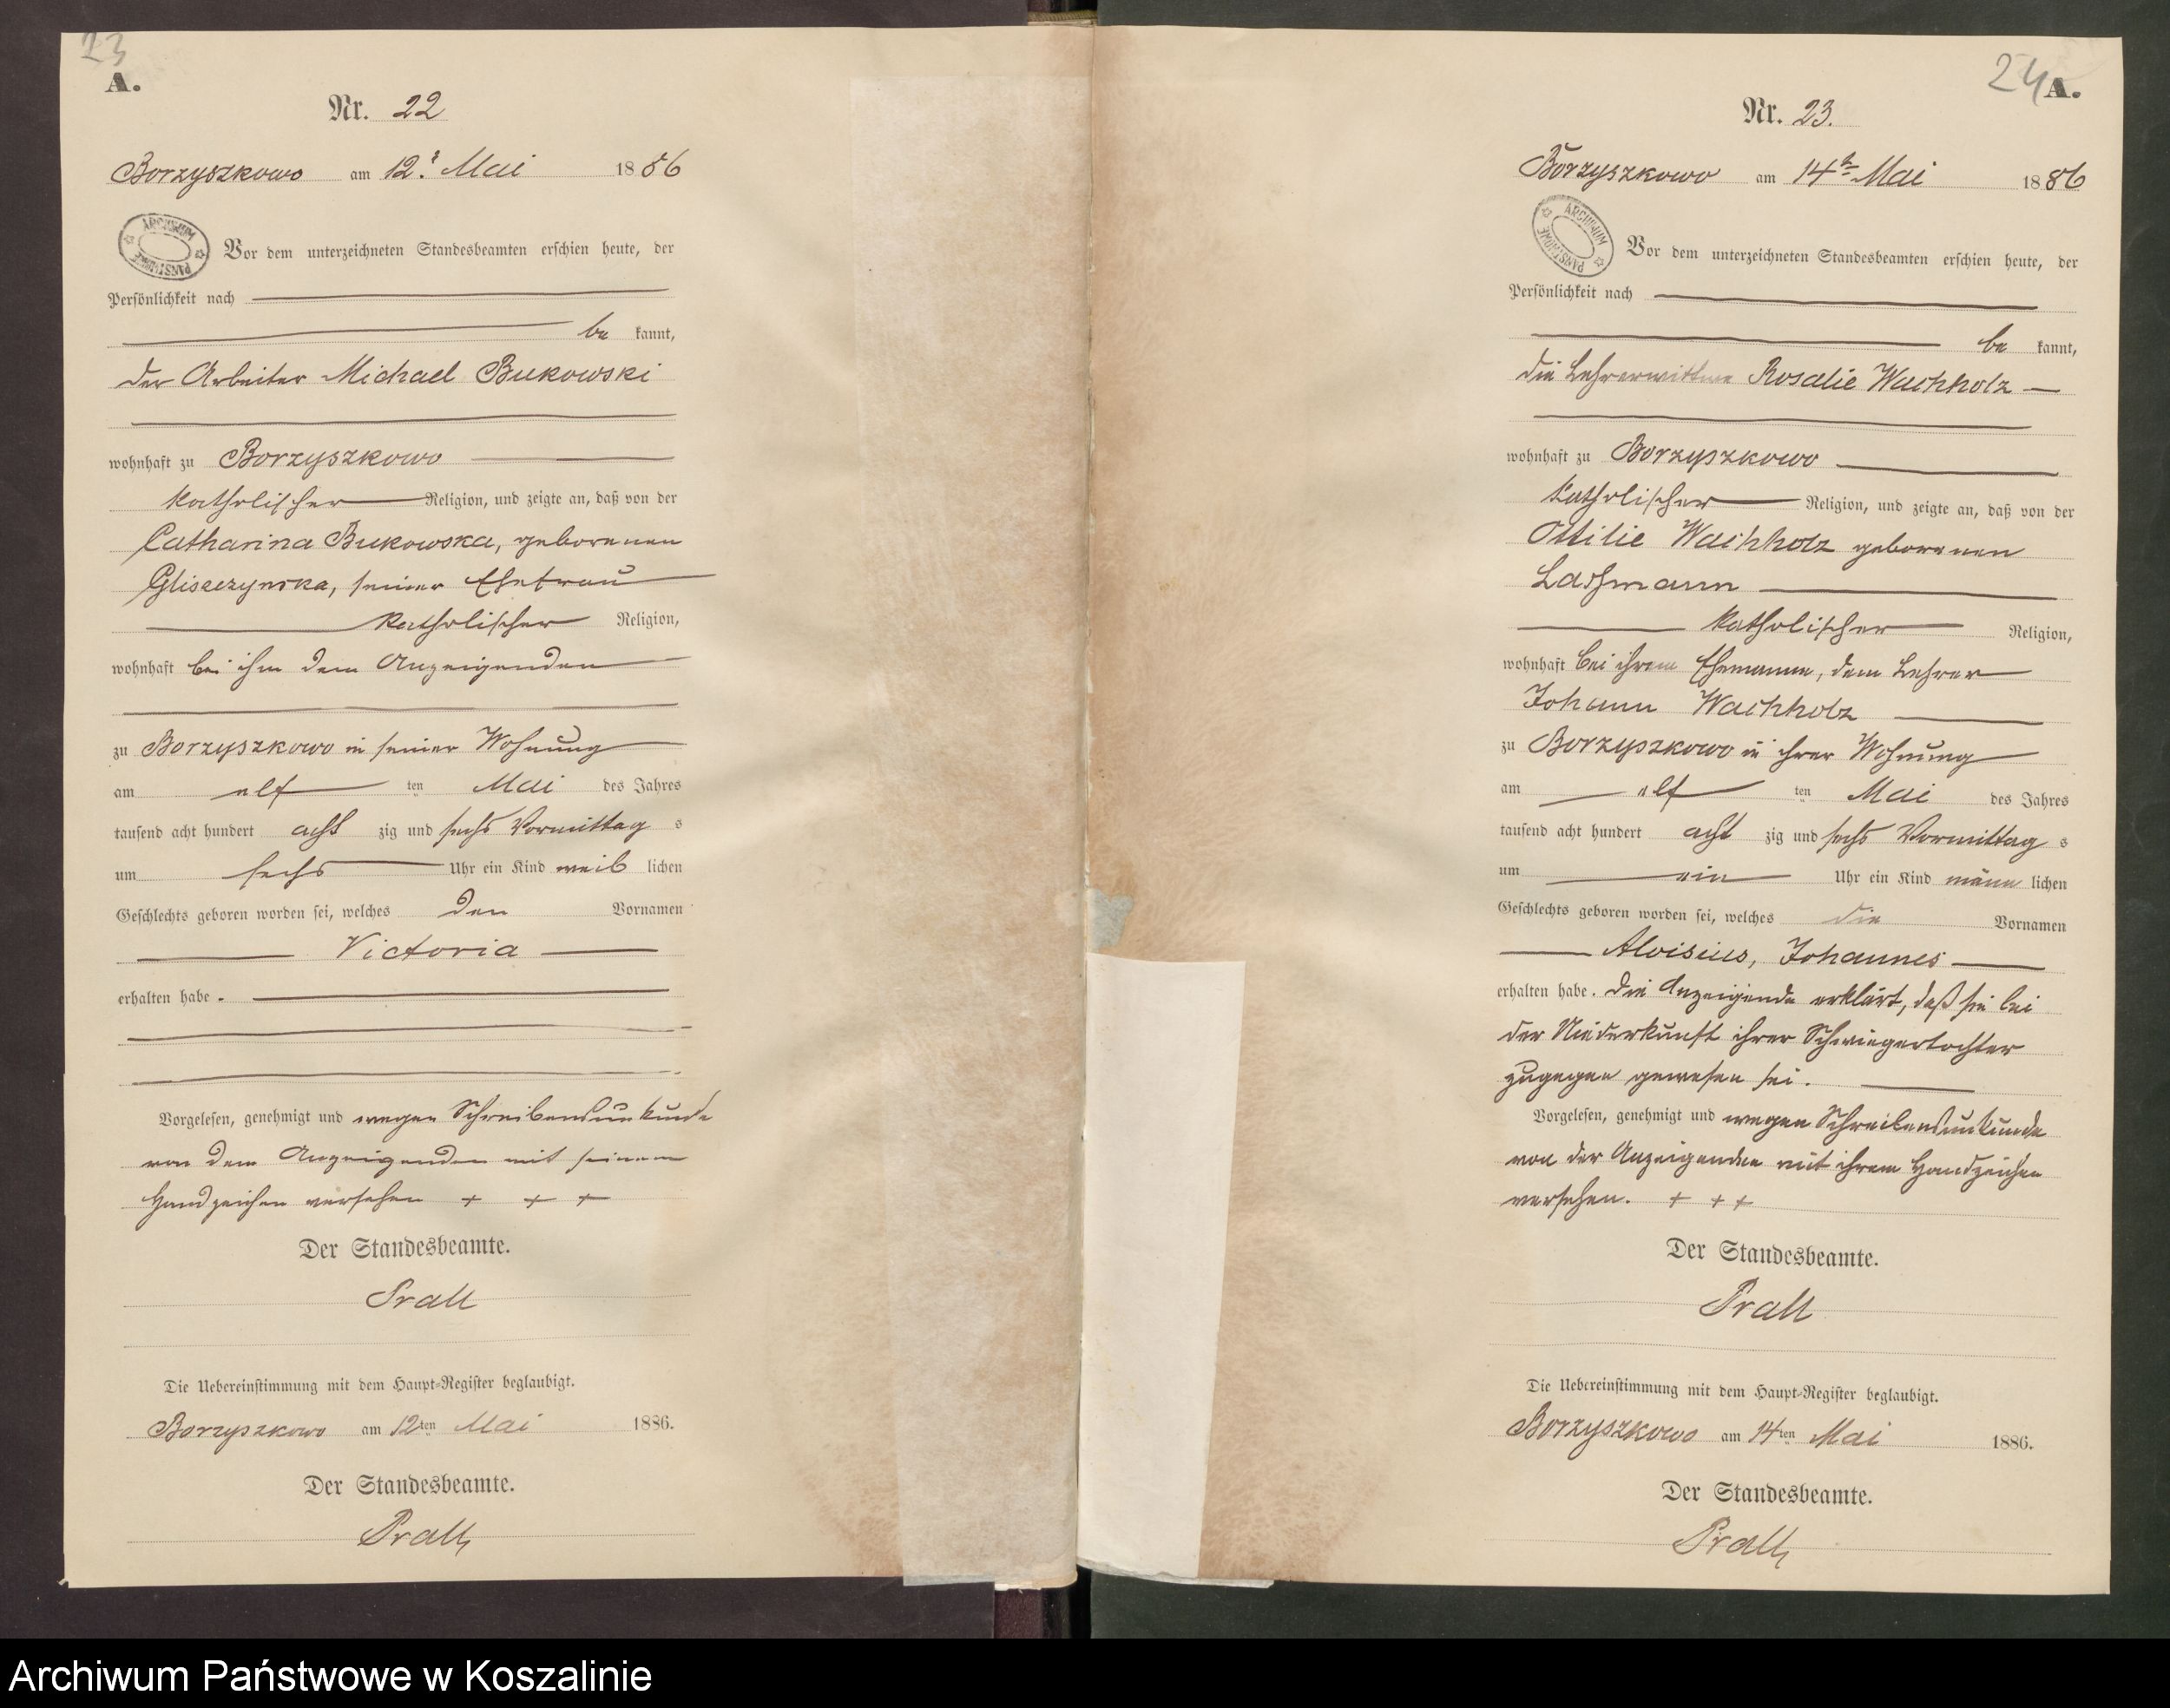 23
A.
Nr. 22
Borzyszkowo am 12. Mai 1886
ARCHIWUM PAŃSTWOWE
Vor dem unterzeichneten Standesbeamten erschien heute, der
Persönlichkeit nach
be kannt,
der Arbeiter Michael Bukowski
wohnhaft zu Borzyszkowo
katholischer Religion, und zeigte an, daß von der
Catharina Bukowska, geborenen
Glisczynska, seiner Ehefrau
katholischer Religion,
wohnhaft bei ihm dem Anzeigenden
zu Borzyszkowo in seiner Wohnung
am elf ten Mai des Jahres
tausend acht hundert acht zig und sechs Vormittag s
um sechs Uhr ein Kind weib lichen
Geschlechts geboren worden sei, welches den Vornamen
Victoria
erhalten habe.
Vorgelesen, genehmigt und wegen Schreibensunkunde
von dem Anzeigenden mit seinem
Handzeichen versehen + + +
Der Standesbeamte.
Prall
Die Uebereinstimmung mit dem Haupt-Register beglaubigt.
Borzyszkowo am 12ten Mai 1886.
Der Standesbeamte.
Prall
24
A.
Nr. 23.
Borzyszkowo am 14t Mai 1886
ARCHIWUM PAŃSTWOWE
Vor dem unterzeichneten Standesbeamten erschien heute, der
Persönlichkeit nach
be kannt,
die Lehrerwittwe Rosalie Wachholz
wohnhaft zu Borzyszkowo
katholischer Religion, und zeigte an, daß von der
Ottilie Wachholz geborenen
Laschmann
katholischer Religion,
wohnhaft bei ihrem Ehemanne, dem Lehrer
Johann Wachholz
zu Borzyszkowo in ihrer Wohnung
am elf ten Mai des Jahres
tausend acht hundert acht zig und sechs Vormittag s
um ein Uhr ein Kind männ lichen
Geschlechts geboren worden sei, welches die Vornamen
Aloisius, Johannes
erhalten habe. Die Anzeigende erklärt, daß sie bei
der Niederkunft ihrer Schwiegertochter
zugegen gewesen sei.
Vorgelesen, genehmigt und wegen Schreibensunkunde
von der Anzeigenden mit ihrem Handzeichen
versehen. + + +
Der Standesbeamte.
Prall
Die Uebereinstimmung mit dem Haupt-Register beglaubigt.
Borzyszkowo am 14ten Mai 1886.
Der Standesbeamte.
Prall
Archiwum Państwowe w Koszalinie